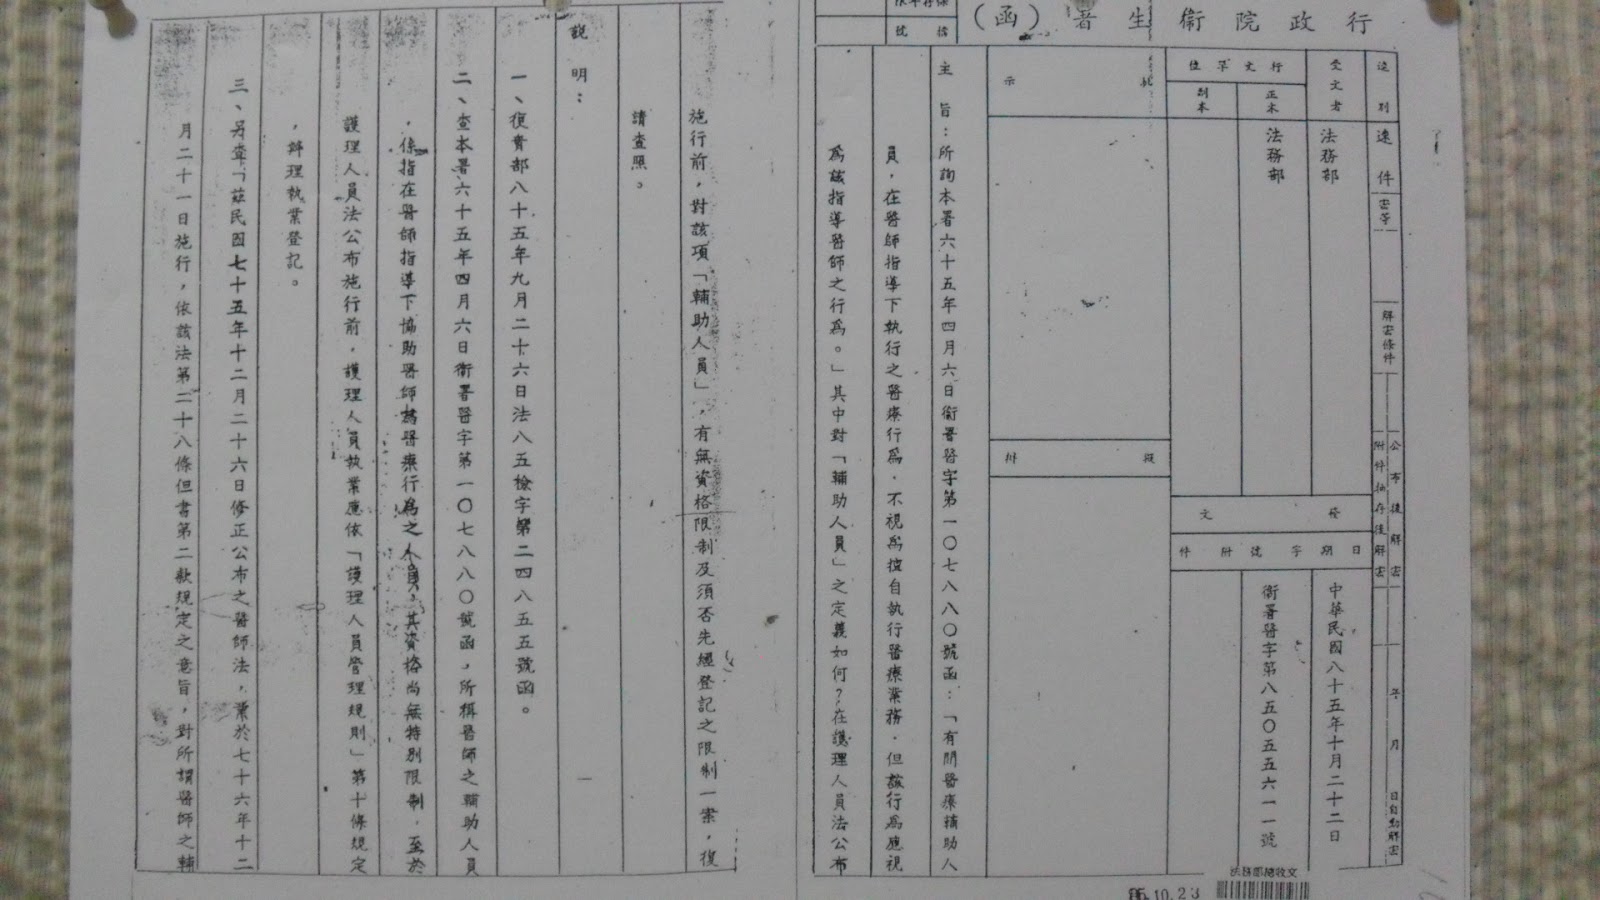 行政院衛生署（函）
保存年限
檔號
速別
速件
密等
解密條件
公布後解密
附件抽存後解密
年 月 日自動解密
受文者
法務部
行文單位
正本
法務部
副本
發文
日期
中華民國八十五年十月二十二日
字號
衛署醫字第八五〇五五六一一號
附件
批示
擬辦
主旨：所詢本署六十五年四月六日衛署醫字第一〇七八八〇號函：「有關醫療輔助人
員，在醫師指導下執行之醫療行為，不視為擅自執行醫療業務，但該行為應視
為該指導醫師之行為。」其中對「輔助人員」之定義如何？在護理人員法公布
法務部總收文
85.10.23
施行前，對該項「輔助人員」，有無資格限制及須否先經登記之限制一案，復
請查照。
說明：
一、復貴部八十五年九月二十六日法八五檢字第二四八五五號函。
二、查本署六十五年四月六日衛署醫字第一〇七八八〇號函，所稱醫師之輔助人員
，係指在醫師指導下協助醫師為醫療行為之人員，其資格尚無特別限制，至於
護理人員法公布施行前，護理人員執業應依「護理人員管理規則」第十條規定
，辦理執業登記。
三、另查「茲民國七十五年十二月二十六日修正公布之醫師法，業於七十六年十二
月二十一日施行，依該法第二十八條但書第二款規定之意旨，對所謂醫師之輔